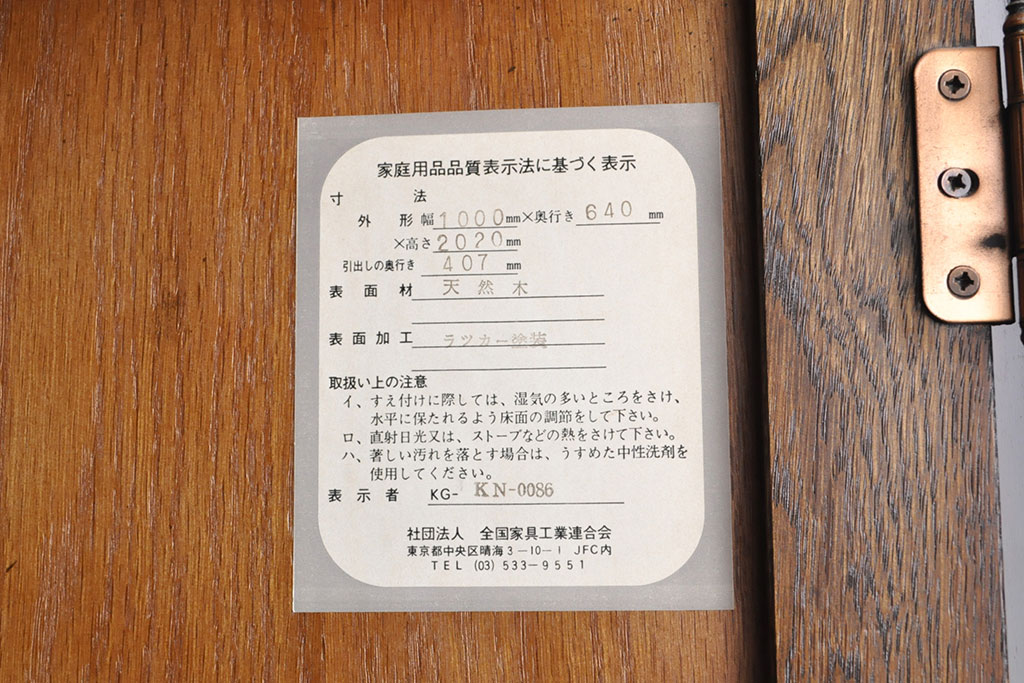 家庭用品品質表示法に基づく表示
寸 法
外 形 幅 1000 mm×奥行き 640 mm
×高さ 2020 mm
引出しの奥行き 407 mm
表 面 材 天 然 木
表 面 加 工 ラツカー塗装
取扱い上の注意
イ、すえ付けに際しては、湿気の多いところをさけ、
水平に保たれるよう床面の調節をして下さい。
ロ、直射日光又は、ストーブなどの熱をさけて下さい。
ハ、著しい汚れを落とす場合は、うすめた中性洗剤を
使用してください。
表 示 者 KG- KN-0086
社団法人 全国家具工業連合会
東京都中央区晴海3-10-1 JFC内
TEL (03) 533-9551